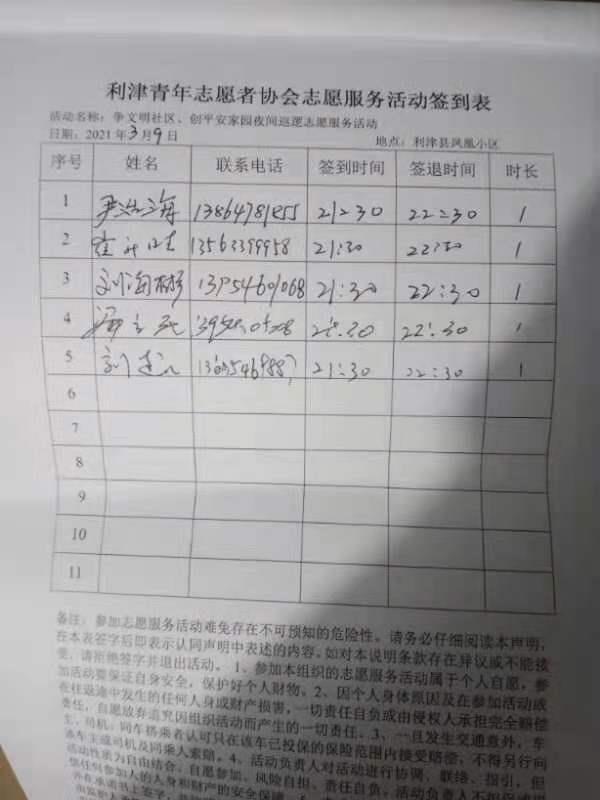 利津青年志愿者协会志愿服务活动签到表
活动名称：争文明社区、创平安家园夜间巡逻志愿服务活动
日期：2021年3月9日 地点：利津县凤凰小区
序号 姓名 联系电话 签到时间 签退时间 时长
1 尹浩海 21:30 22:30 1
2 13563399958 21:30 22:30 1
3 刘海彬 13954601068 21:30 22:30 1
4 22:30 1
5 刘 21:30 22:30 1
6
7
8
9
10
11
备注：参加志愿服务活动难免存在不可预知的危险性。请务必仔细阅读本声明，
在本表签字后即表示认同声明中表述的内容。如对本说明条款存在异议或不能接
受，请拒绝签字并退出活动。1、参加本组织的志愿服务活动属于个人自愿，参
加活动要保证自身安全，保护好个人财物。2、因个人身体原因及在参加活动或
在往返途中发生的任何人身或财产损害，一切责任自负或由侵权人承担完全赔偿
责任，自愿放弃追究因组织活动而产生的一切责任。3、一旦发生交通意外，车
主、司机、同车搭乘者认可只在该车已投保的保险范围内接受赔偿，不得另行向
该车主或司机及同乘人索赔。4、活动负责人对活动进行协调、联络、指引，但
活动性质为自由结合、自愿参加、风险自担、责任自负。活动负责人不担保
任何参加人的人身和财产的安全保障